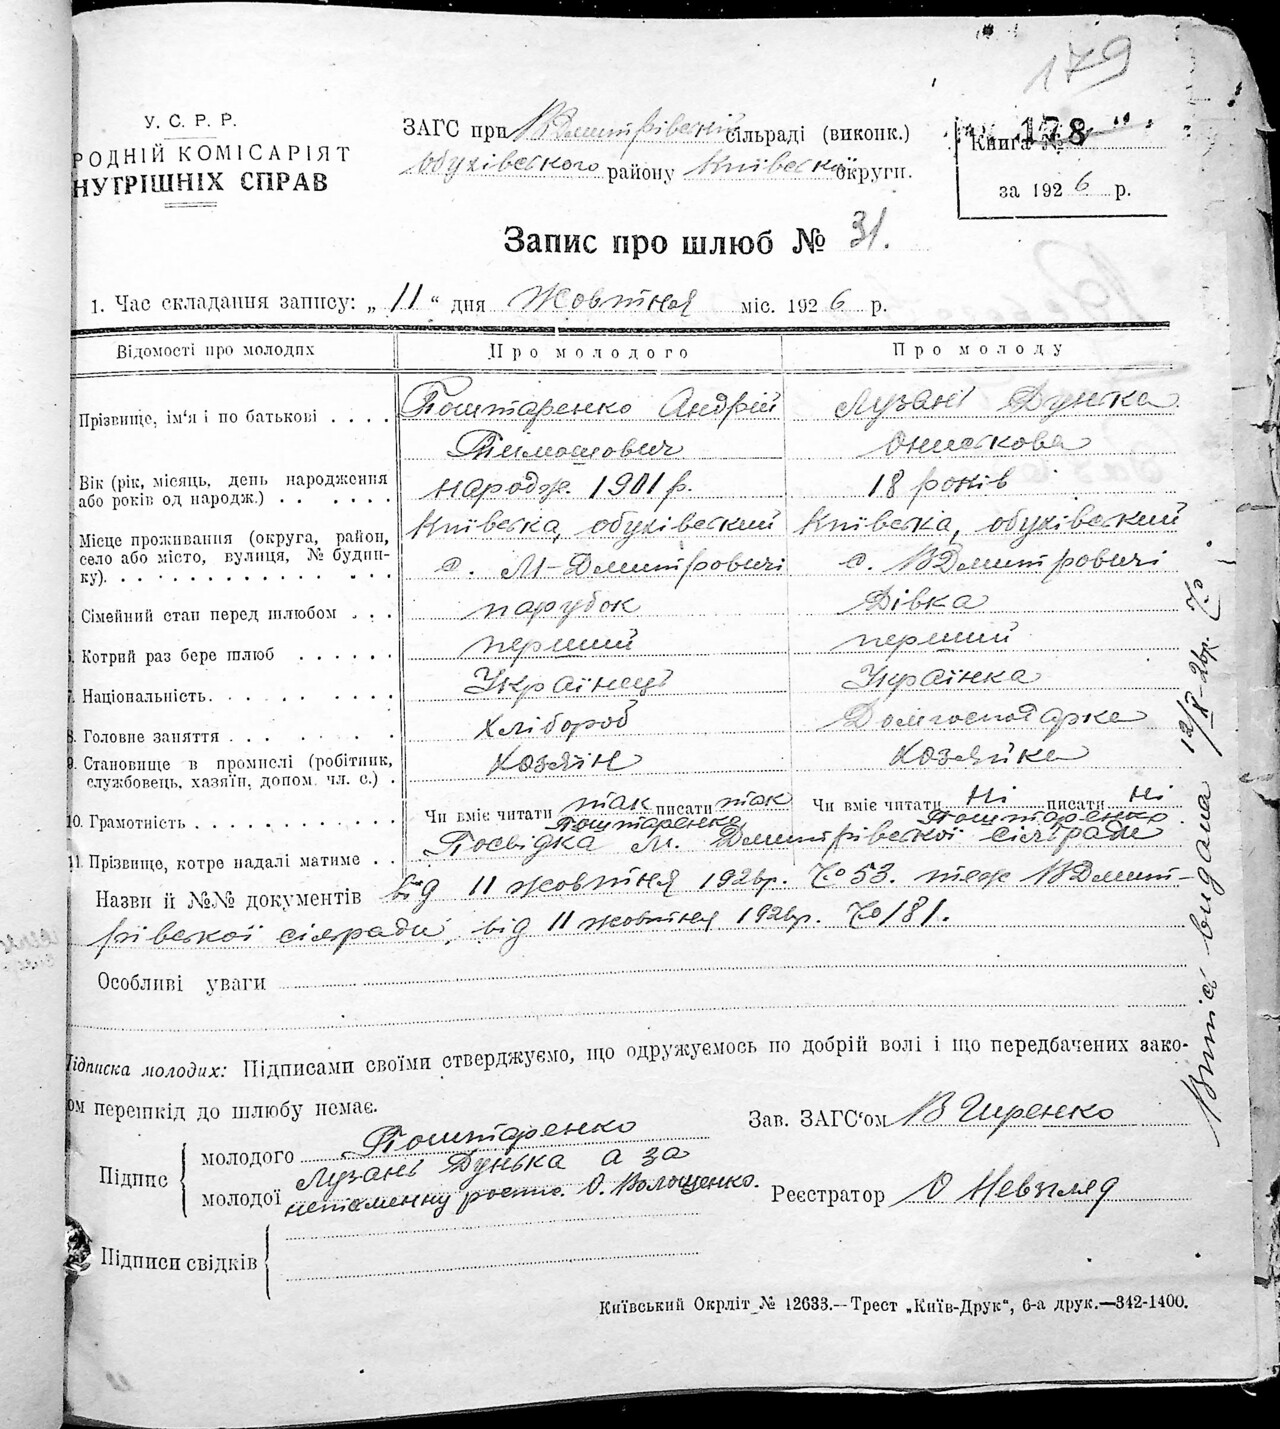 179
У. С. Р. Р.
РОДНІЙ КОМІСАРІЯТ
НУТРІШНІХ СПРАВ
ЗАГС при ВДмитрівській сільраді (виконк.)
Обухівського району Київської округи.
Книга № 178
за 1926 р.
Запис про шлюб № 31.
1. Час складання запису: „11“ дня Жовтня міс. 1926 р.
Відомості про молодих Про молодого Про молоду
Прізвище, ім‘я і по батькові . . . . Поштаренко Андрій Лузані Дунька
Тимошович Ониськова
Вік (рік, місяць, день народження або років од народж.) . . . . . . народж. 1901 р. 18 років
Місце проживання (округа, район, Київська, обухівський Київська, обухівський
село або місто, вулиця, № будин- с. М-Дмитровичі с. ВДмитровичі
ку). . . . . . . . . . . . . .
Сімейний стан перед шлюбом . . . парубок Дівка
Котрий раз бере шлюб . . . . . . перший перший
7. Національність. . . . . . . . . . Українець Українка
8. Головне заняття . . . . . . . . Хлібороб Домгосподарка
9. Становище в промислі (робітник, службовець, хазяїн, допом. чл. с.) . Хозяїн Хозяйка
10. Грамотність . . . . . . . . . . . Чи вміє читати так писати так Чи вміє читати Ні писати Ні
11. Прізвище, котре надалі матиме . . Поштаренко Поштаренко
Посвідка М. Дмитрівської сільради
Назви й №№ документів від 11 жовтня 1926р. № 53. теж ВДмит-
рівської сільради, від 11 жовтня 1926р. № 181.
Особливі уваги
Підписка молодих: Підписами своїми стверджуємо, що одружуємось по добрій волі і що передбачених зако-
ом перешкід до шлюбу немає.
Зав. ЗАГС‘ом В Гиренко
Підпис
молодого Поштаренко
молодої Лузані Дунька а за
неписьменну роспис. О. Волощенко.
Реєстратор О Невгляд
Підписи свідків
Київський Окрліт № 12633.—Трест „Київ-Друк“, 6-а друк.—342-1400.
Випис видана 12/X-26р.